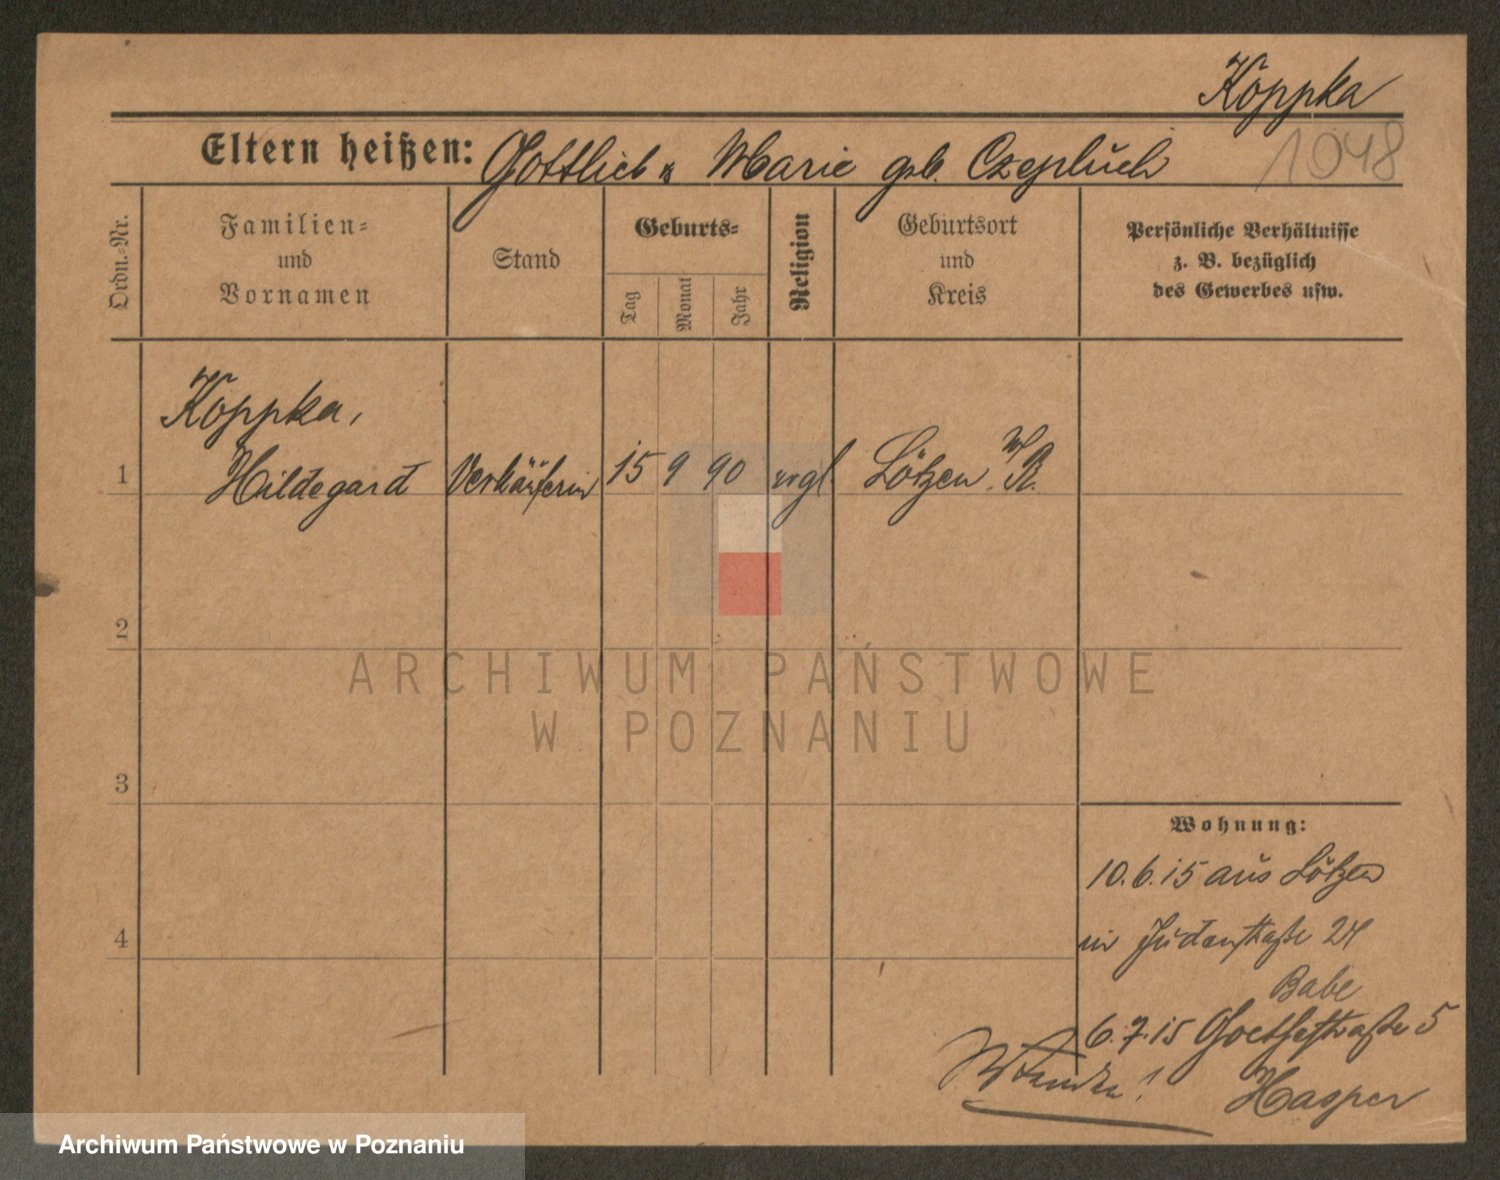 Köppka
Eltern heißen: Gottlieb u Marie geb. Czepluch
1048
Ordn.-Nr.
Familien-
und
Vornamen
Stand
Geburts-
Tag
Monat
Jahr
Religion
Geburtsort
und
Kreis
Persönliche Verhältnisse
z. B. bezüglich
des Gewerbes usw.
Köppka,
1 Hildegard Verkäuferin 15 9 90 evgl Lötzen
2
3
4
Wohnung:
10.6.15 aus Lötzen
in Judenstraße 24
Babe
6.7.15 Goethestraße 5
Wenden!
Hasper
ARCHIWUM PAŃSTWOWE
W POZNANIU
Archiwum Państwowe w Poznaniu